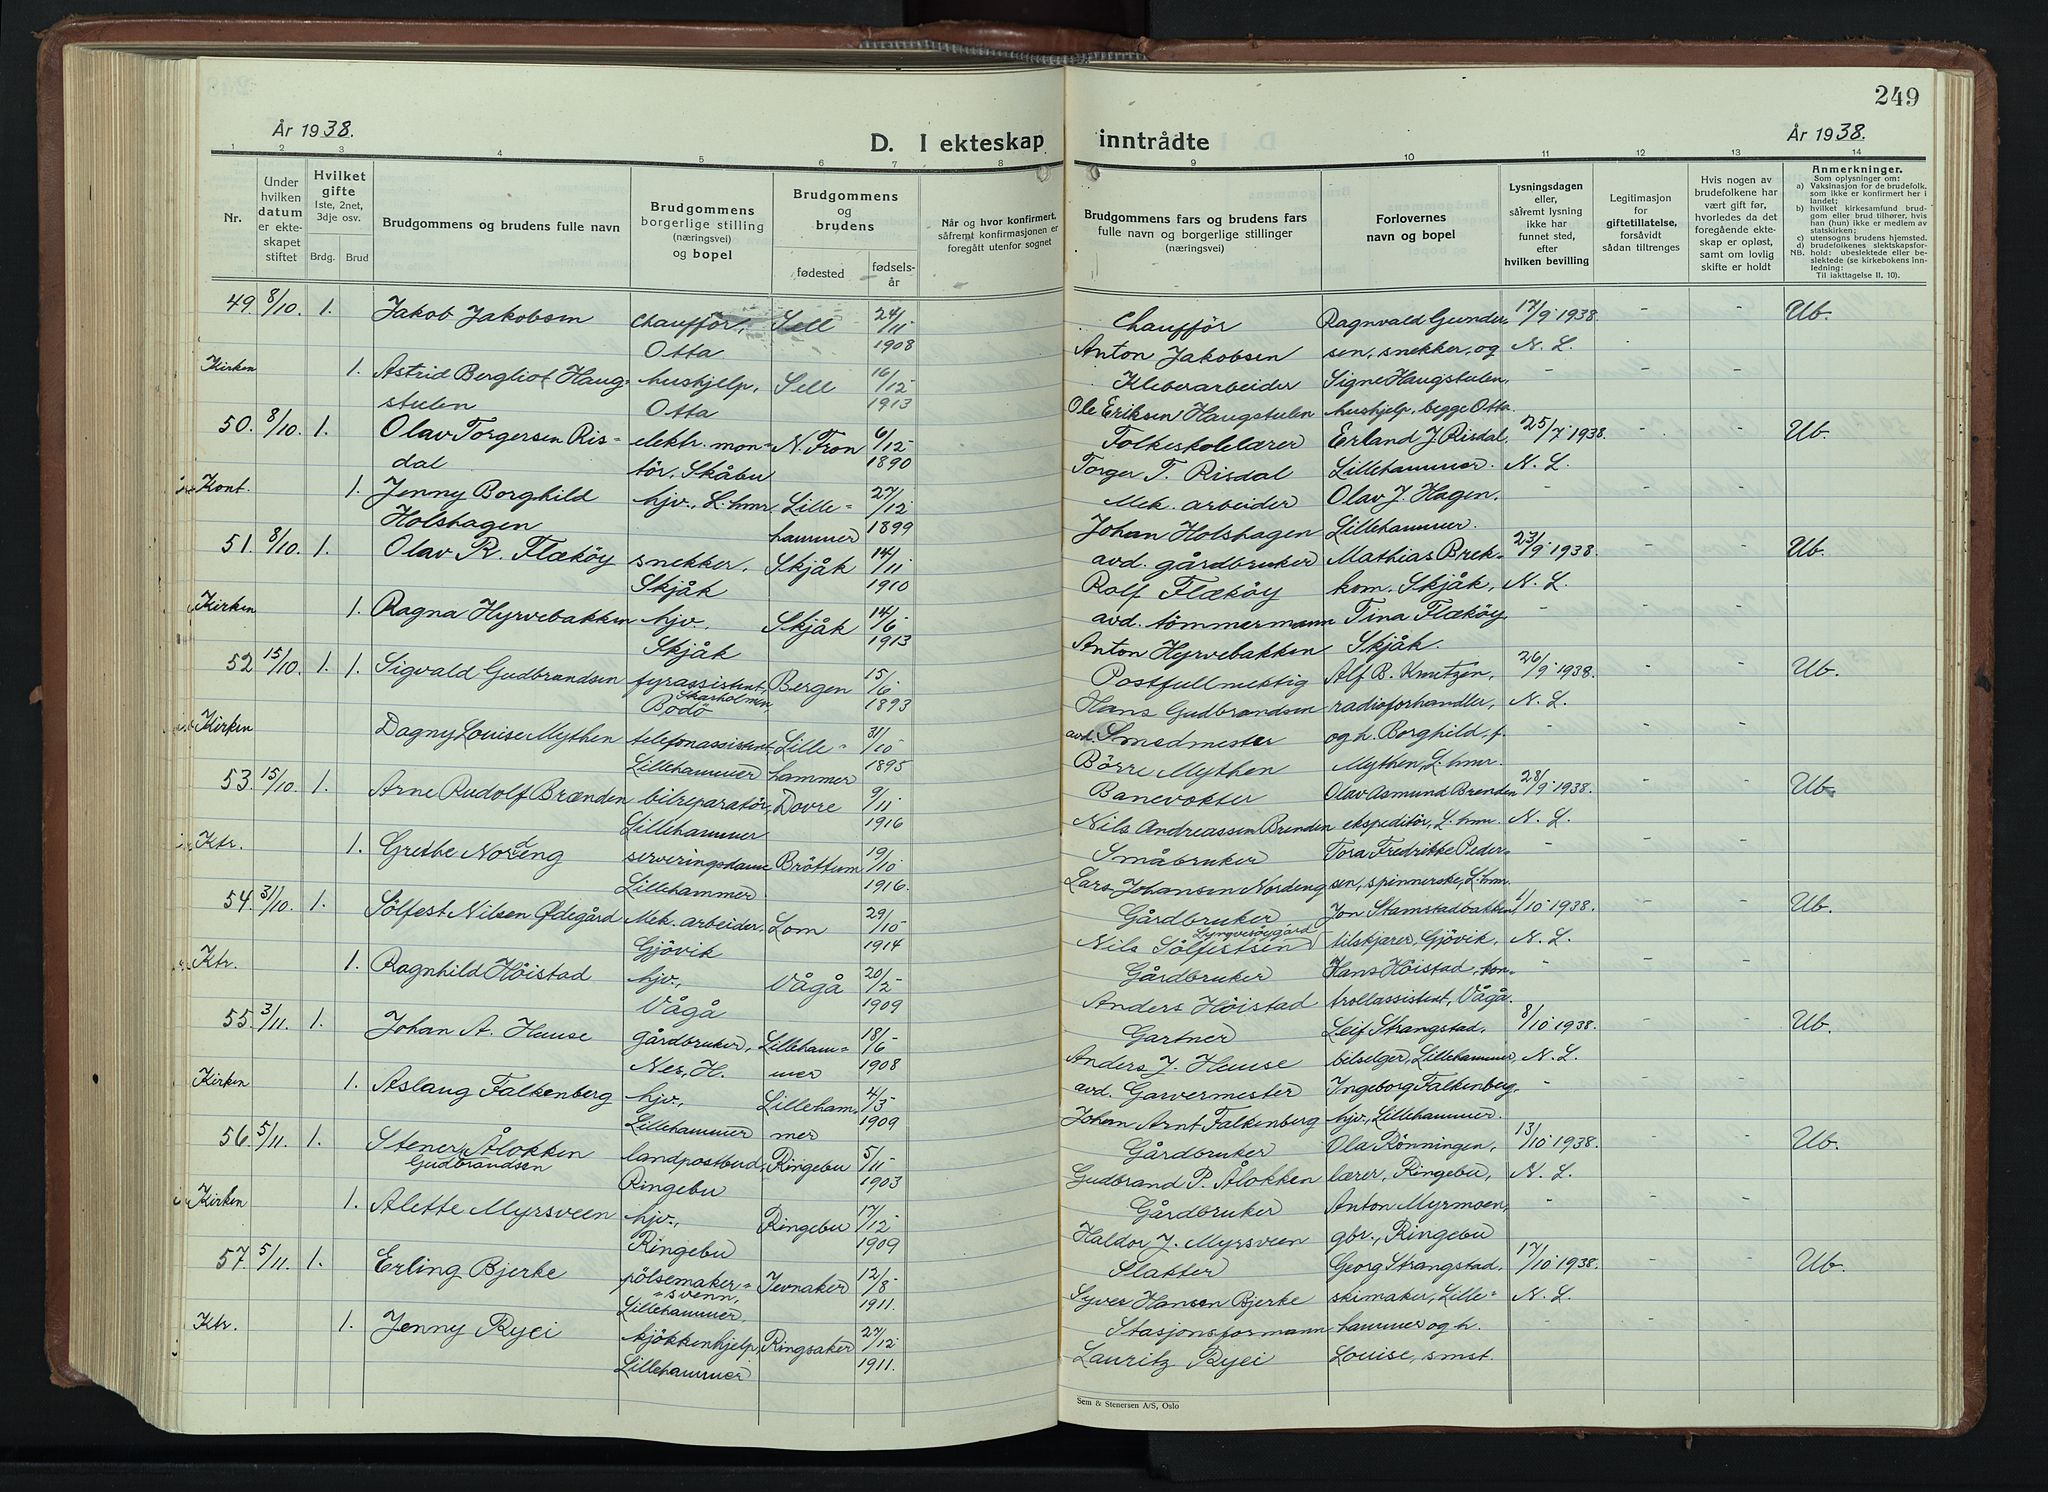 249
År 1938.
D. I ekteskap inntrådte
År 1938.
1 2 3 4 5 6 7 8 9 10 11 12 13 14
Nr.
Under hvilken datum er ekteskapet stiftet
Hvilket gifte 1ste, 2net, 3dje osv.
Brdg. Brud
Brudgommens og brudens fulle navn
Brudgommens borgerlige stilling (næringsvei) og bopel
Brudgommens og brudens
fødested
fødselsår
Når og hvor konfirmert, såfremt konfirmasjonen er foregått utenfor sognet
Brudgommens fars og brudens fars fulle navn og borgerlige stillinger (næringsvei)
Forlovernes navn og bopel
Lysningsdagen eller, såfremt lysning ikke har funnet sted, efter hvilken bevilling
Legitimasjon for giftetillatelse, forsåvidt sådan tiltrenges
Hvis nogen av brudefolkene har vært gift før, hvorledes da det foregående ekteskap er opløst, samt om lovlig skifte er holdt
Anmerkninger.
Som oplysninger om:
a) Vaksinasjon for de brudefolk. som ikke er konfirmert her i landet.
b) hvilket kirkesamfund brudgom eller brud tilhører, hvis han (hun) ikke er medlem av statskirken;
c) utensogns brudens hjemsted.
d) brudefolkenes slektskapsforhold: ubeslektede eller beslektede (se kirkebokens innledning:
NB.
Til iakttagelse II. 10).
49. 8/10. 1. Jakob Jakobsen chauffør, Otta Sell 24/11 1908 Chauffør Anton Jakobsen Ragnvald Gundersen, snekker, og 17/9 1938. N. L. - - Ub.
Kirken 1. Astrid Bergliot Haugstulen hushjelp, Otta Sell 16/12 1913 Kleberarbeider Ole Eriksen Haugstulen Signe Haugstulen, hushjelp, begge Otta. - - -
50. 8/10. 1. Olav Torgersen Risdal elektr. montør, Skåbu N. Fron 6/12 1890 Folkeskolelærer Torger T. Risdal Erland J. Risdal, Lillehammer. 25/7 1938. N. L. - - Ub.
Kont. 1. Jenny Borghild Holshagen hjv., L.hmr. Lillehammer 27/12 1899 Mek. arbeider Johan Holshagen Olav J. Hagen, Lillehammer. - - -
51. 8/10. 1. Olav R. Flækøy snekker, Skjåk Skjåk 14/11 1910 avd. gårdbruker Rolf Flækøy Mathias Brekkom, Skjåk, 23/9 1938. N. L. - - Ub.
Kirken 1. Ragna Hyrvebakken hjv. Skjåk Skjåk 14/6 1913 avd. tømmermann Anton Hyrvebakken Tina Flækøy Skjåk. - - -
52 15/10. 1. 1. Sigvald Gudbrandsen fyrassistent, Skarholmen, Bodø Bergen 15/6 1893 Postfullmektig Hans Gudbrandsen Alf B. Knutzen, radioforhandler, 26/9 1938. N. L. - - Ub.
Kirken Dagny Louise Mythen telefonassistent, Lillehammer Lillehammer 31/10 1895 avd. Smedmester Børre Mythen og h. Borghild, f. Mythen, L.hmr. - - -
53. 15/10. 1. Arne Rudolf Brænden bilreparatør, Lillehammer Dovre 9/11 1916 Banevokter Nils Andreassen Brenden Olav Asmund Brenden ekspeditør, L.hmr. 28/9 1938. N. L. - - Ub.
Ktr. 1. Grethe Nordeng serveringsdame Lillehammer. Brøttum 19/10 1916. Småbruker Lars Johansen Nordeng Tora Fredrikke Pedersen, spinnerske, L.hmr. - - -
54. 31/10. 1. Sølfest Nilsen Ødegård Mek. arbeider, Gjøvik Lom 29/10 1914 Gårdbruker Nils Sølfestsen Ola Jon Stamstadbakken, tilskjærer, Gjøvik. 1/10 1938. N. L. - - Ub.
Ktr. 1. Ragnhild Høistad hjv., Vågå Vågå 20/2 1909 Gårdbruker Anders Høistad Hans Høistad, kontrollassistent, Vågå. - - -
55. 3/11. 1. Johan A. Huuse gårdbruker, Nes, H. Lillehammer 18/6 1908 Gartner Anders J. Huuse Leif Strangstad, bilselger, Lillehammer, 8/10 1938. N. L. - - Ub.
Kirken 1. Aslaug Falkenberg hjv., Lillehammer Lillehammer 4/3 1909 avd. Garvermester Johan Arnt Falkenberg Ingeborg Falkenberg, hjv., Lillehammer. - - -
56. 5/11. 1. Stener Gudbrandsen Ålokken landpostbud, Ringebu Ringebu 5/11 1903 Gårdbruker Gudbrand P. Ålokken Ola Rønningen, lærer, Ringebu, 13/10 1938. N. L. - - Ub.
Kirken 1. Alette Myrsveen hjv., Ringebu Ringebu 17/12 1909 Gårdbruker Haldor J. Myrsveen Anton Myrmoen, gbr., Ringebu - - -
57. 5/11. 1. Erling Bjerke pølsemakersvenn, Lillehammer, Jevnaker 12/8 1911. Slakter Syver Hansen Bjerke Georg Strangstad, skimaker, Lillehammer og h. 17/10 1938. N. L. - - Ub.
Ktr. 1. Jenny Ryei kjøkkenhjelp, Lillehammer Ringsaker 27/12 1911. Stasjonsformann Lauritz Ryei Louise, smst. - - -
Sem & Stenersen A/S, Oslo